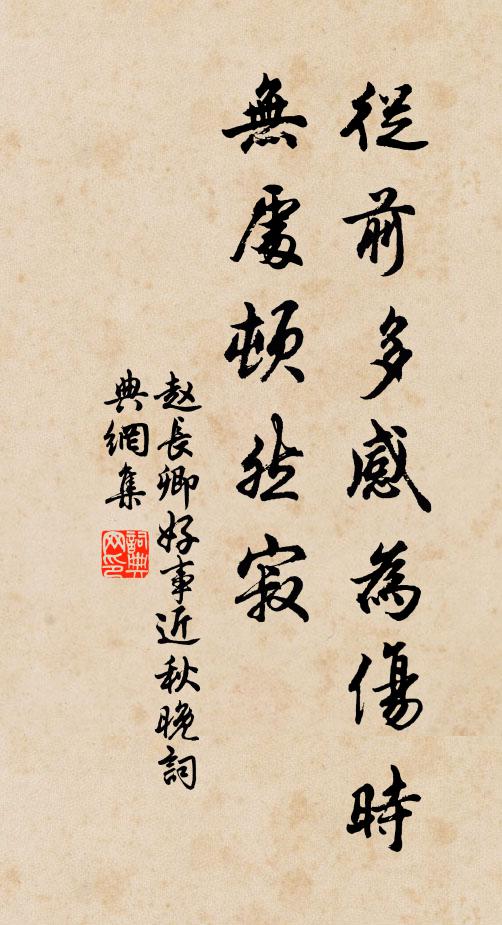 從前多感為傷時
無處頓然寂
赵長卿好事近秋晚詞
典網集
詞典
网印